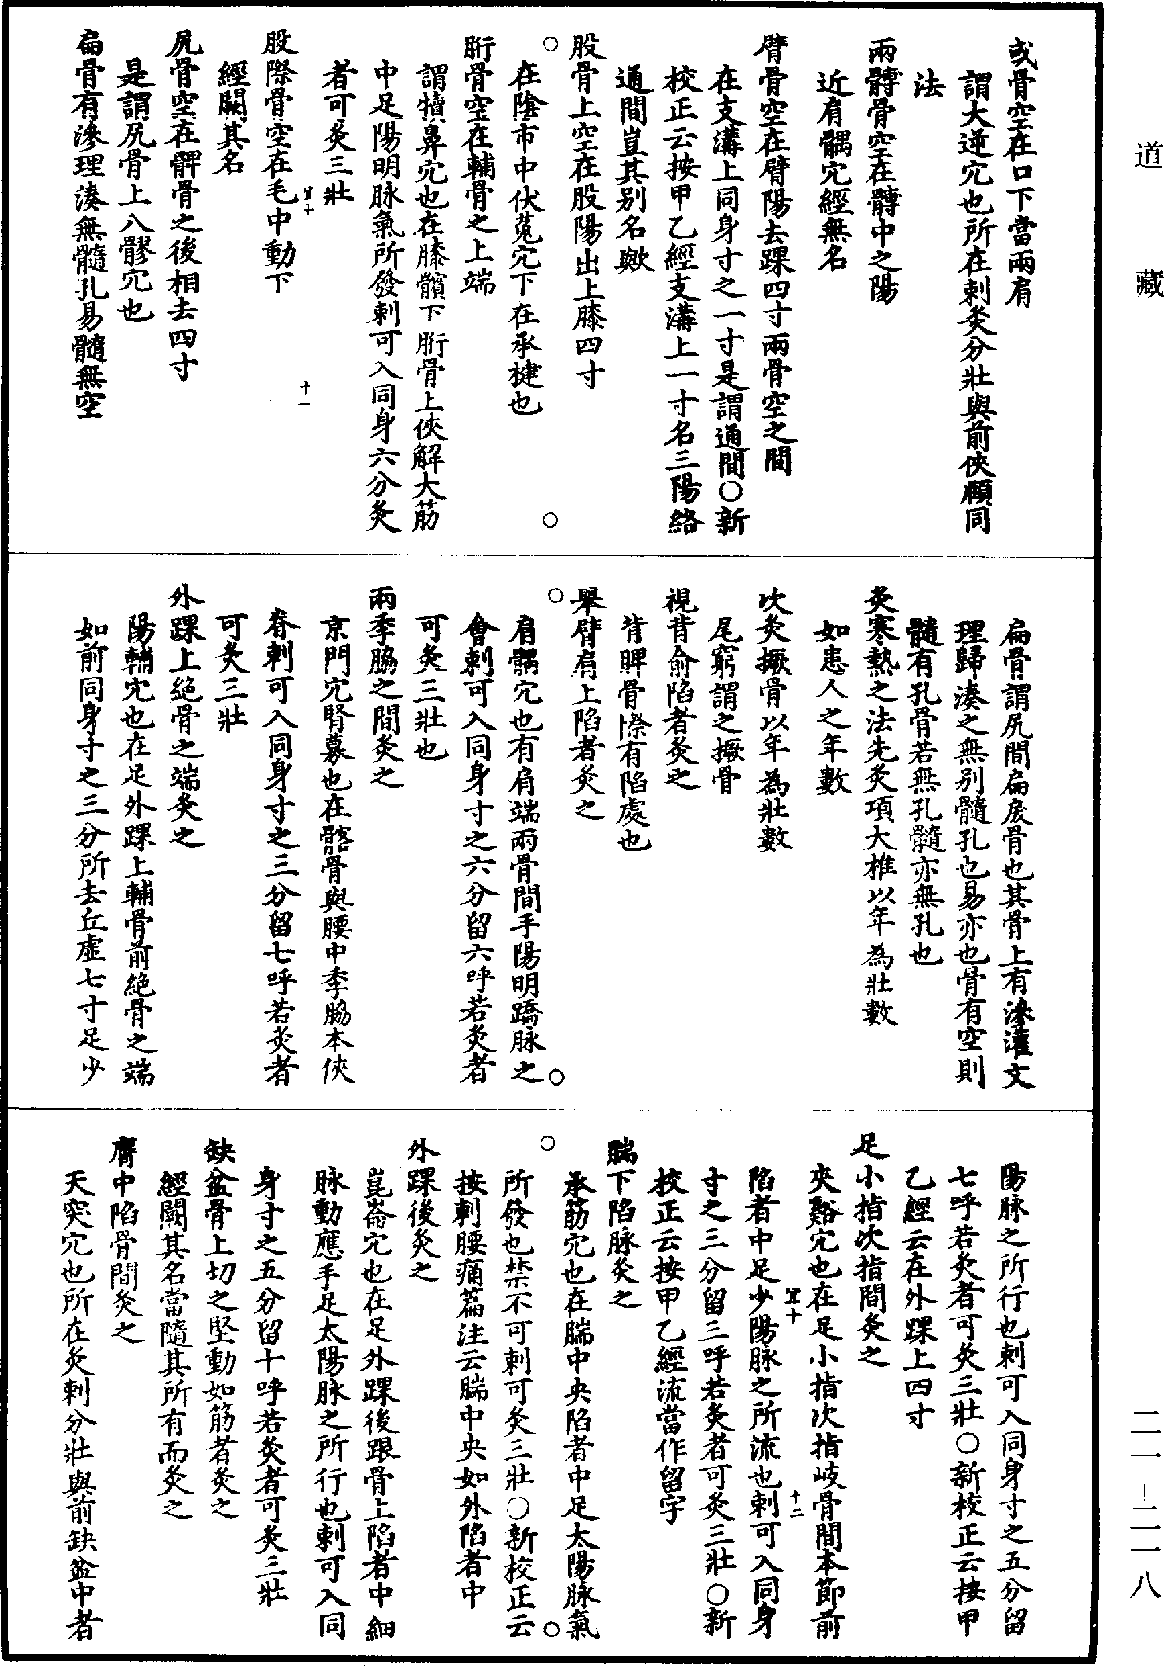 道藏
或骨空在口下當兩肩
謂大迎穴也所在刺灸分壯與前俠頤同
法
兩髆骨空在髆中之陽
近肩髃穴經無名
臂骨空在臂陽去踝四寸兩骨空之間
在支溝上同身寸之一寸是謂通間○新
校正云按甲乙經支溝上一寸名三陽絡
通間豈其别名歟
股骨上空在股陽出上膝四寸
在陰市中伏菟穴下在承楗也
胻骨空在輔骨之上端
謂犢鼻穴也在膝髕下胻骨上俠解大筋
中足陽明脉氣所發刺可入同身六分灸
者可灸三壯
股際骨空在毛中動下
經闕其名
尻骨空在髀骨之後相去四寸
是謂尻骨上八髎穴也
扁骨有滲理湊無髓孔易髓無空
扁骨謂尻間扁戾骨也其骨上有滲灌文
理歸湊之無别髓孔也易亦也骨有空則
髓有孔骨若無孔髓亦無孔也
灸寒熱之法先灸項大椎以年為壯數
如患人之年數
次灸撅骨以年為壯數
尾窮謂之撅骨
視背俞陷者灸之
背胛骨際有陷處也
舉臂肩上陷者灸之
肩髃穴也有肩端兩骨間手陽明蹻脉之
會刺可入同身寸之六分留六呼若灸者
可灸三壯也
兩季脇之間灸之
京門穴腎募也在髂骨與腰中季脇本俠
脊刺可入同身寸之三分留七呼若灸者
可灸三壯
外踝上絶骨之端灸之
陽輔穴也在足外踝上輔骨前絶骨之端
如前同身寸之三分所去丘虛七寸足少
陽脉之所行也刺可入同身寸之五分留
七呼若灸者可灸三壯○新校正云按甲
乙經云在外踝上四寸
足小指次指間灸之
夾谿穴也在足小指次指岐骨間本節前
陷者中足少陽脉之所流也刺可入同身
寸之三分留三呼若灸者可灸三壯○新
校正云按甲乙經流當作留字
腨下陷脉灸之
承筋穴也在腨中央陷者中足太陽脉氣
所發也禁不可刺可灸三壯○新校正云
按刺腰痛篇注云腨中央如外陷者中
外踝後灸之
崑崙穴也在足外踝後跟骨上陷者中細
脉動應手足太陽脉之所行也刺可入同
身寸之五分留十呼若灸者可灸三壯
缺盆骨上切之堅動如筋者灸之
經闕其名當隨其所有而灸之
膺中陷骨間灸之
天突穴也所在灸刺分壯與前缺盆中者
十一
十二
二一—二一八